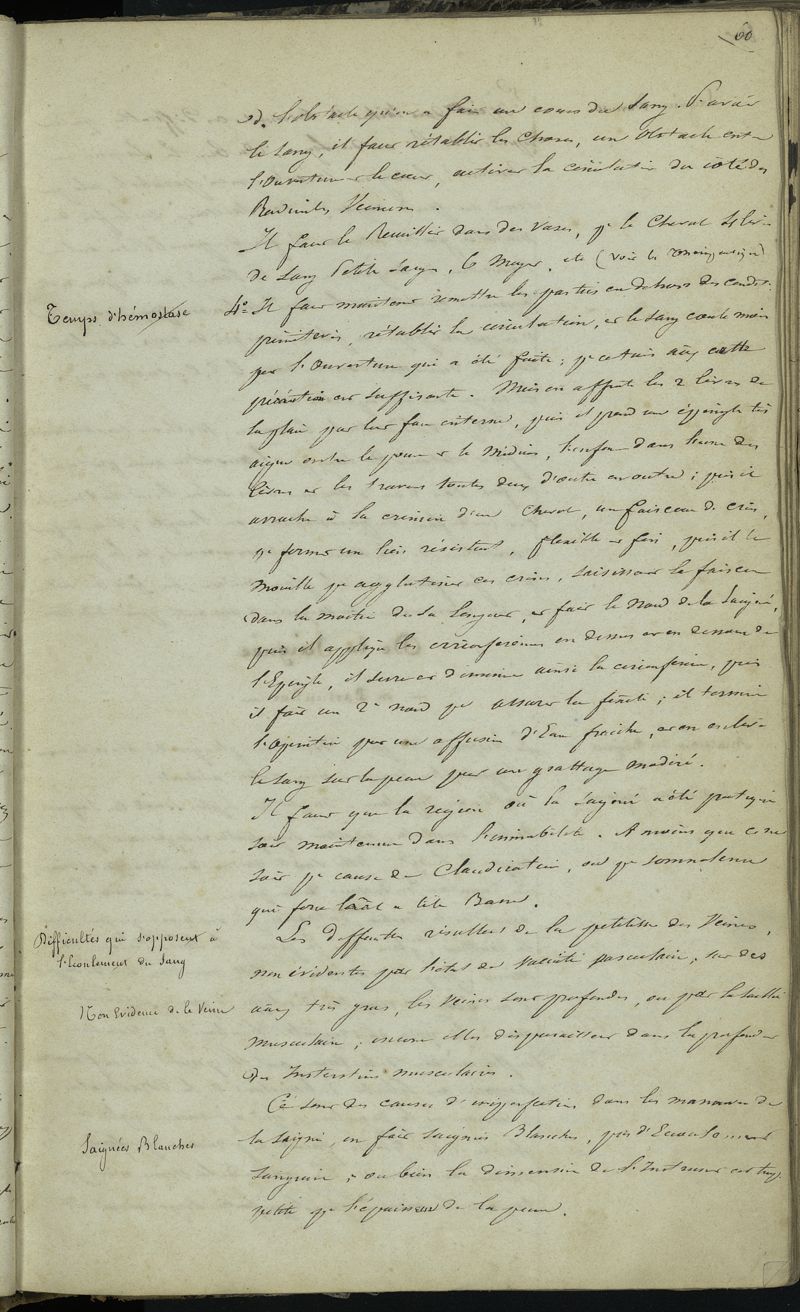 60
l'obstacle qu'on a fait au cours du Sang.
le Sang, il faut rétablir les Choses, un Obstacle entre
l'Ouverture et le cœur, activer la circulation du côté des
Radicules Veineuses.
Il faut le Recueillir dans des Vases, pr le Cheval
de Sang Petite Saignée, 6 Moyen, etc (voir les
Temps d'hémostase
4° Il faut maintenant remettre les parties en dehors des condit.
primitives, rétablir la circulation, et le Sang coule moins
par l'Ouverture qui a été faite; pr certains aux cette
précaution est suffisante. Mais on affronte les 2 lèvres de
la plaie par leur face interne, puis il prend une épingle très
aigue entre le pouce et le Médius, l'enfonce dans l'une des
lèvres et les traverse toutes deux d'outre en outre; puis il
arrache à la crinière d'un Cheval, un faisceau de crins,
pr former un lien résistant, flexible et fin, puis il le
Mouille pr agglutiner ces crins, saisissant le faisceau
dans la moitié de sa Longueur, et fait le Nœud de la Saignée,
puis il applique les circonférences en dessus et en dessous de
l'Epingle, il serre et diminue ainsi la circonférence, puis
il fait un 2e nœud pr assurer la fixité; il termine
l'Opération par une affusion d'Eau fraiche, et on enlève
le Sang sur la peau par un grattage modéré.
Il faut que la région où la Saignée a été pratiquée
soit maintenue dans l'immobilité. A moins que ce ne
soit pr cause de Claudication, ou pr somnolence
qui force l'aâl a tête Basse.
Difficultés qui s'opposent à
l'Ecoulement du Sang
Les Difficultés résultent de la petitesse des Veines,
non évidentes par l'état de vacuité vasculaire; sur des
Non Evidence de la Veine
aux très gras, les Veines sont profondes, ou par la saillie
musculaire; encore elles disparaissent dans la profondeur
des Interstices musculaires.
Ce sont des causes d'imperfection dans les manœuvres de
Saignées Blanches
la saignée, on fait saignées Blanches, pas d'Ecoulement
Sanguin; ou bien la dimension de l'Instrument est trop
petite pr l'épaisseur de la peau.